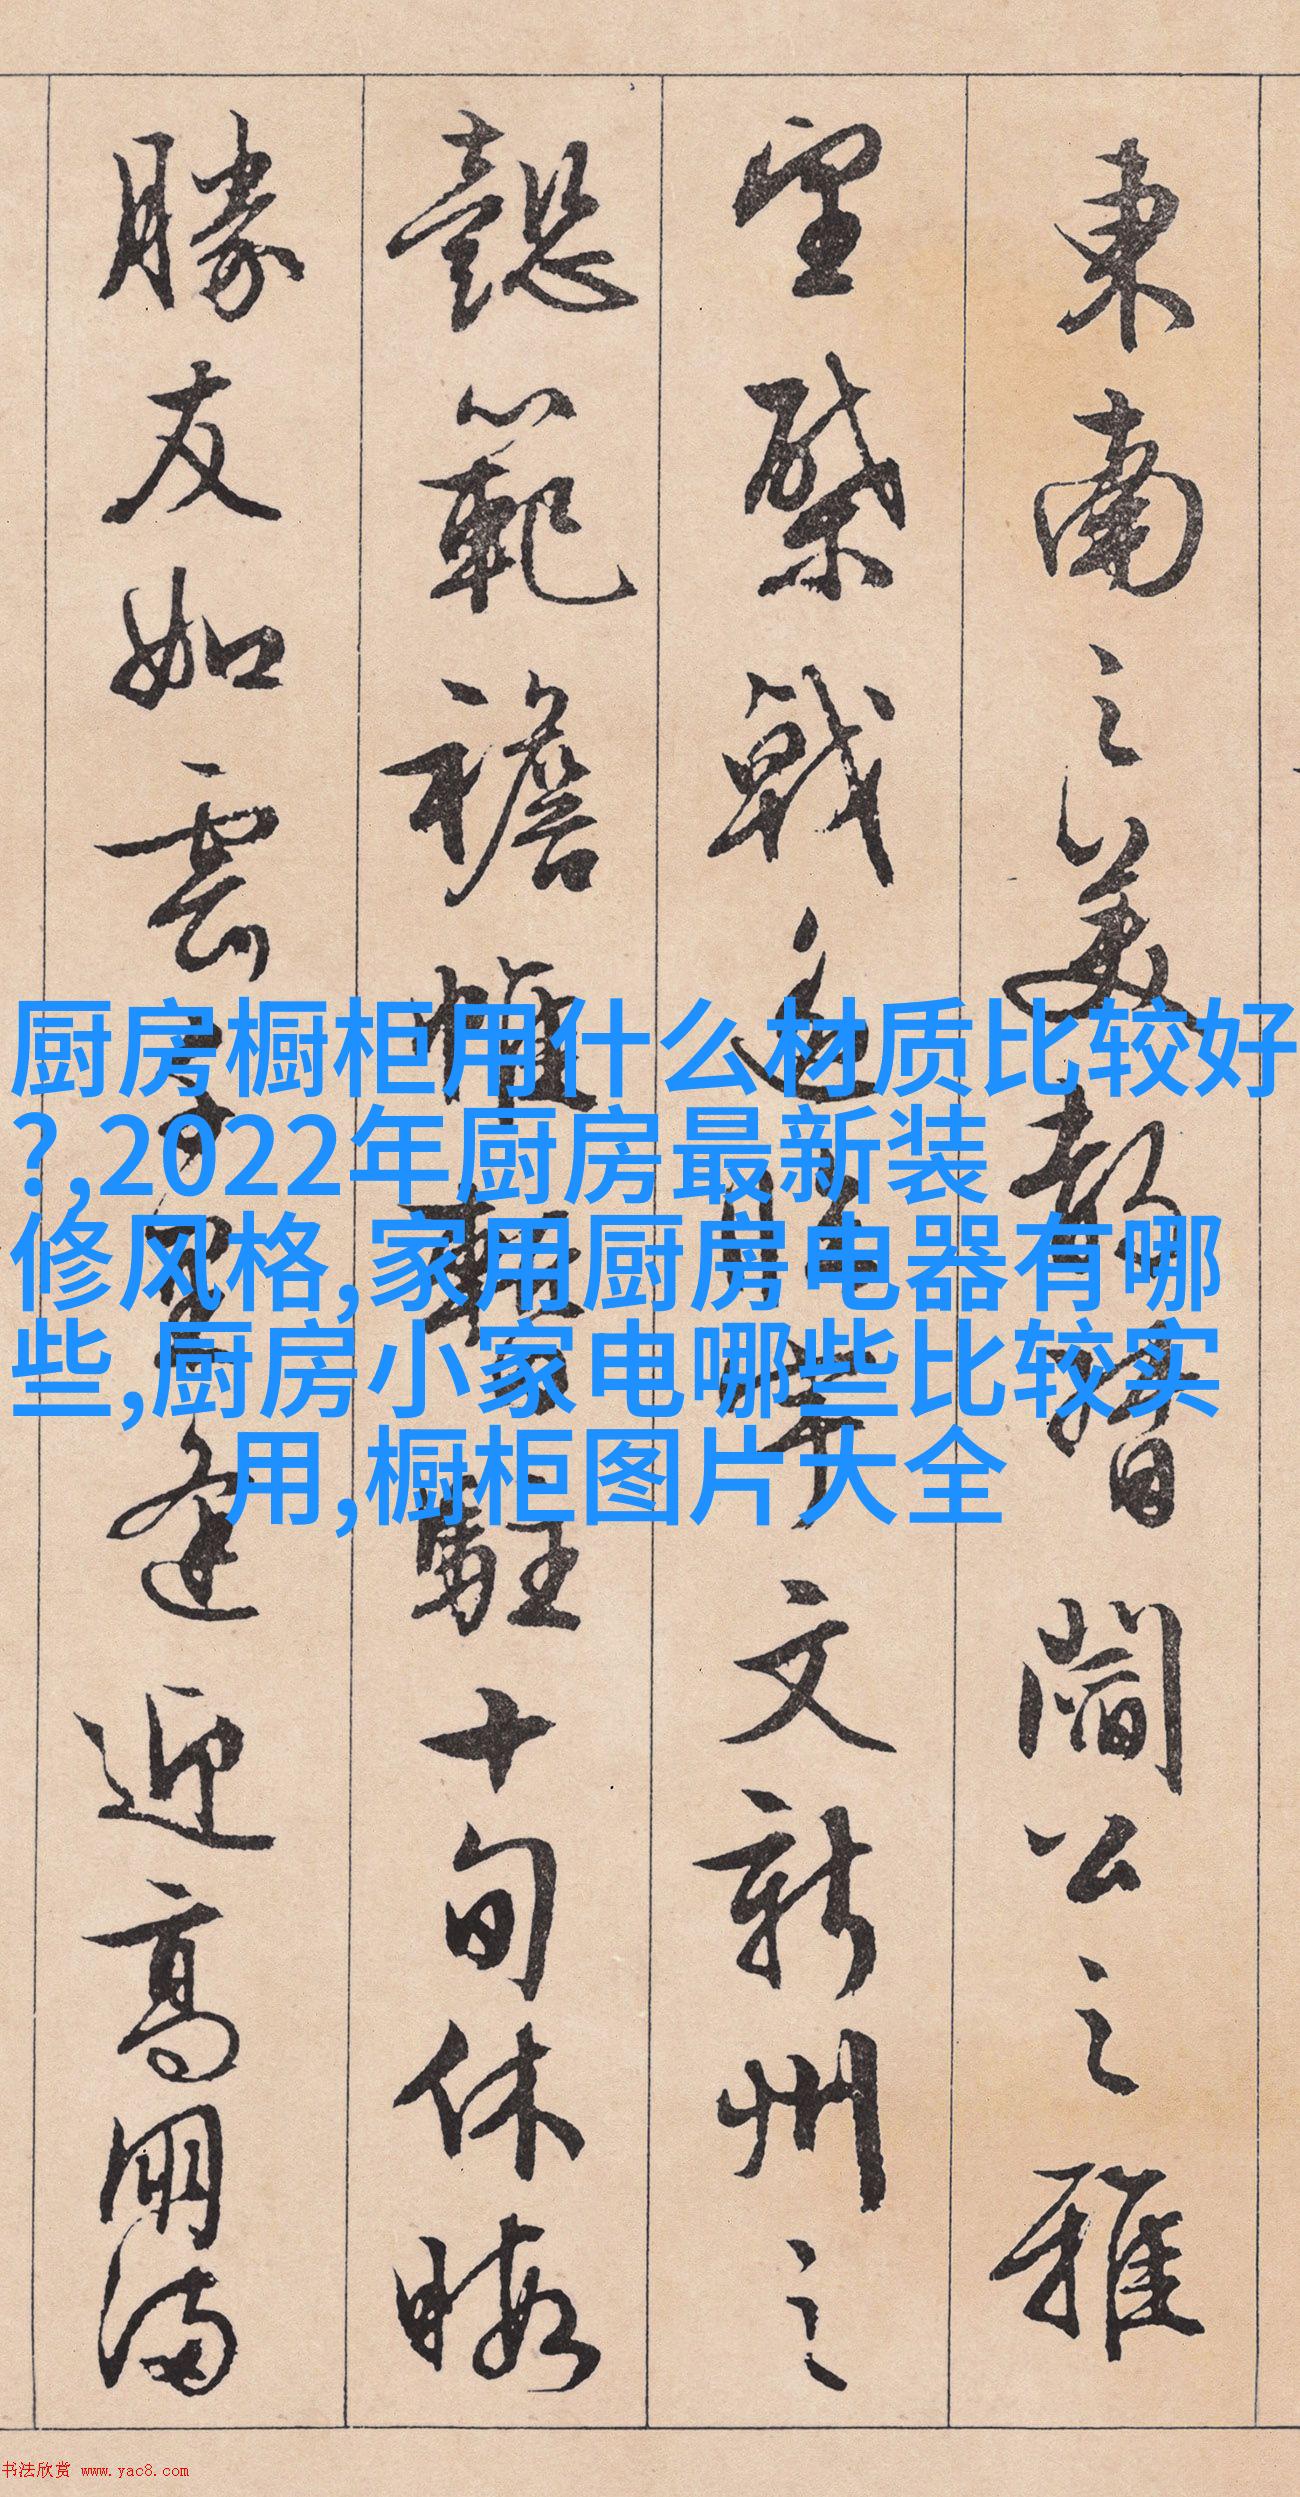 東南之美都督閻公之雅
望棨戟遙臨宇文新州之
懿範襜帷暫駐十旬休暇
勝友如雲千里逢迎高朋滿
厨房橱柜用什么材质比较好
?,2022年厨房最新装
修风格,家用厨房电器有哪
些,厨房小家电哪些比较实
用,橱柜图片大全
书法欣赏 www.yac8.com